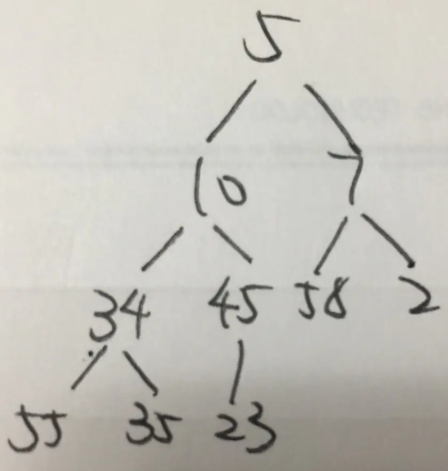 5
10 7
34 45 58 2
55 35 23